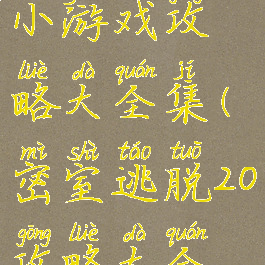 小游戏攻
lüè dà quán jí
略大全集(
mì shì táo tuō
密室逃脱20
gōng lüè dà quán
攻略大全